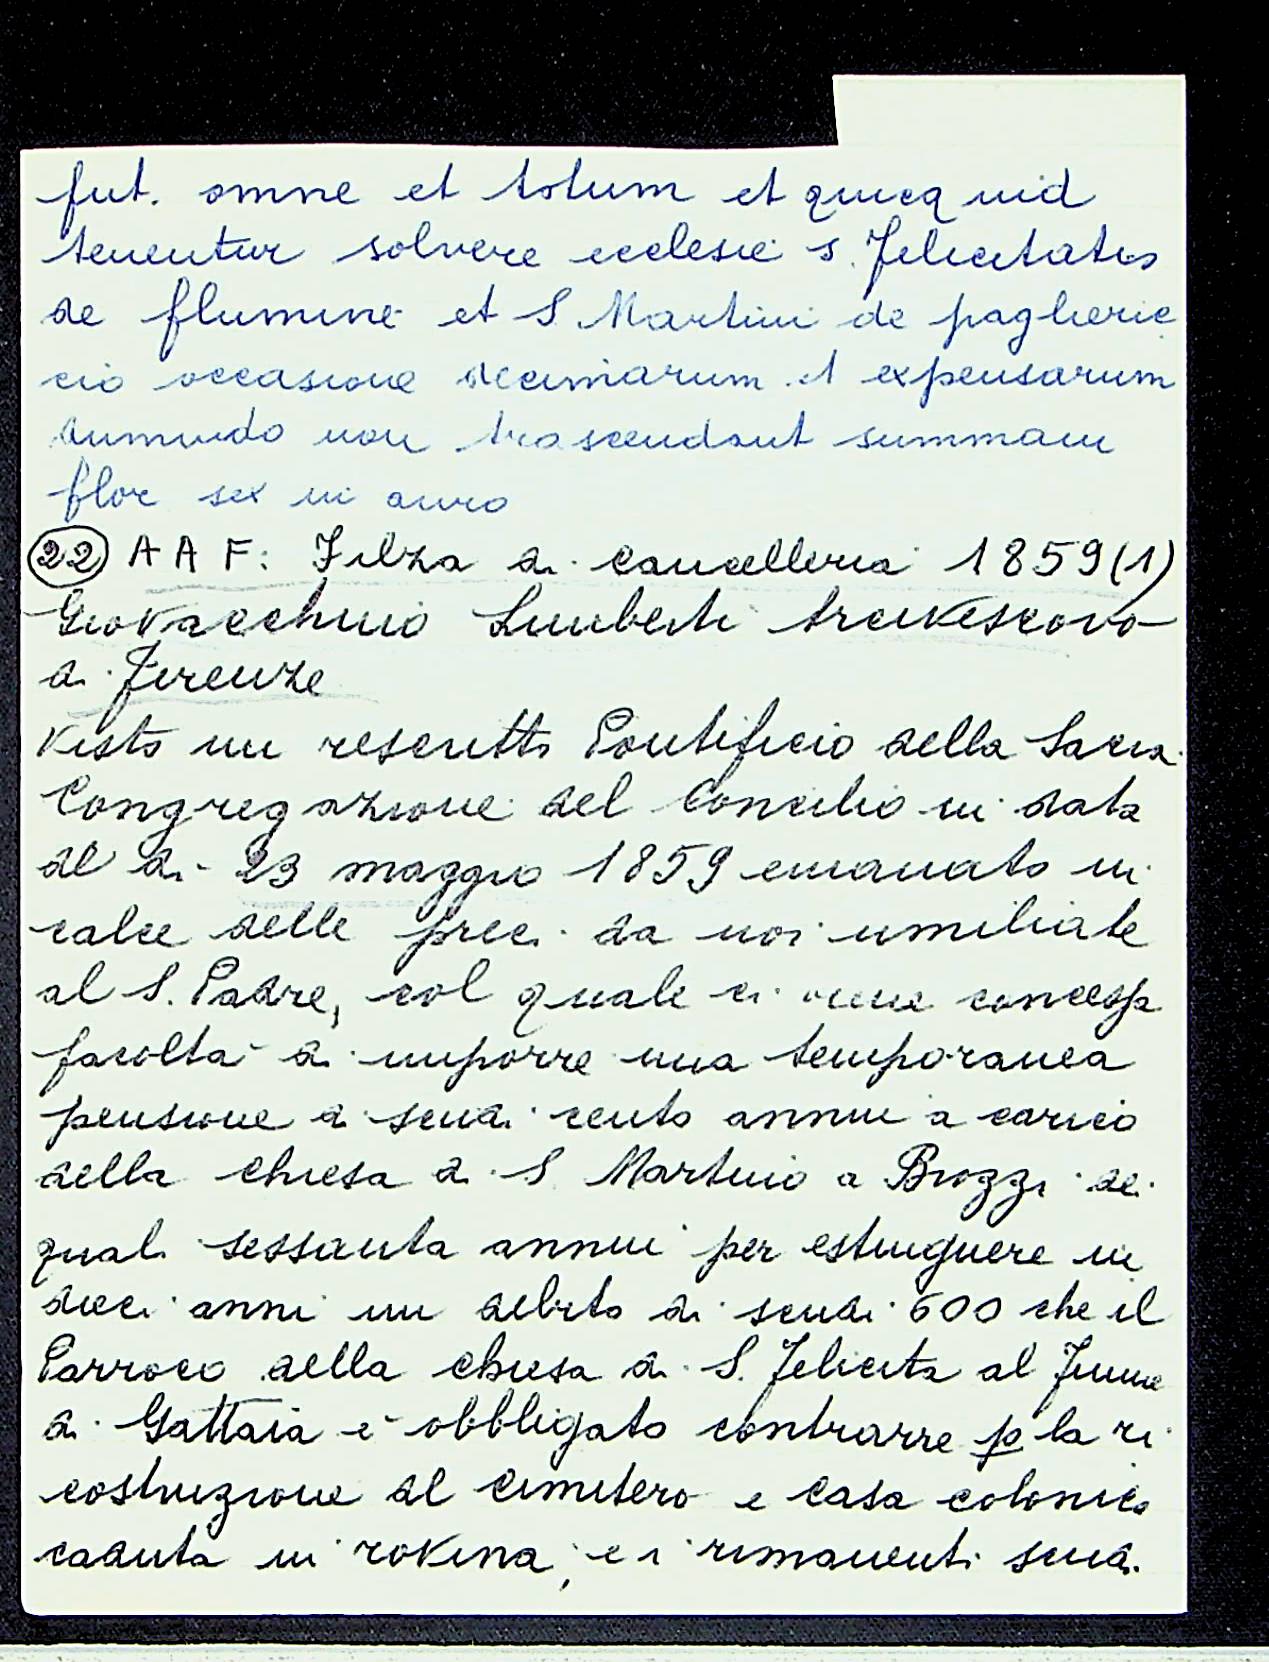 fut. omne et totum et quicquid
tenentur solvere ecclesie s. Felicitatis
de flumine et S Martini de paglieric
cio occasione decimarum et expensarum
dummodo non trascendant summam
flor sex in auro
(22) A A F: Filza di cancelleria 1859 (1)
Giovacchino Limberti Arcivescovo
di Firenze
Visto un rescritto Pontificio della Sacra
Congregazione del Concilio in data
del di 23 maggio 1859 emanato in
calce delle preci da noi umiliate
al S. Padre, col quale ci viene concessa
facoltà di imporre una temporanea
pensione di scudi cento annui a carico
della chiesa di S Martino a Brozzi dei
quali sessanta annui per estinguere in
dieci anni un debito di scudi 600 che il
Parroco della chiesa di S. Felicita al Fiume
di Gattaia è obbligato contrarre p la ri
costruzione del cimitero e casa colonica
caduta in rovina, e i rimanenti scudi